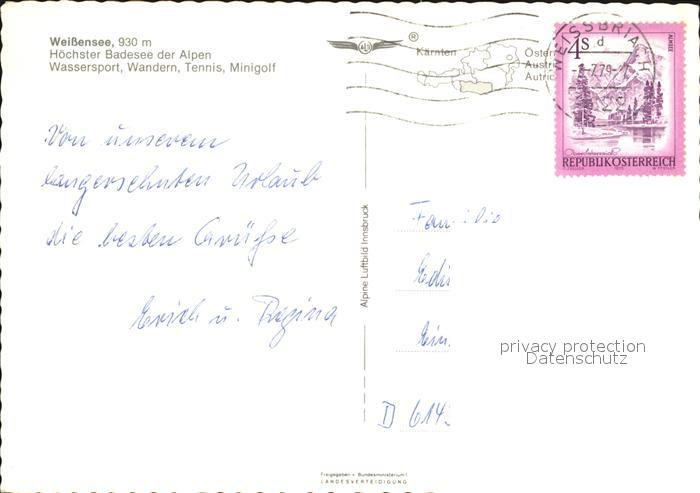 Weißensee, 930 m
Höchster Badesee der Alpen
Wassersport, Wandern, Tennis, Minigolf
ALI
®
Kärnten
Öster
Austri
Autric
WEISSBRIACH
d
4S
ALMSEE
REPUBLIKÖSTERREICH
Von unserem
langersehnten Urlaub
die besten Grüße
Erich u. Regina
Alpine Luftbild Innsbruck
Familie
Edi
Ein
D 614
privacy protection
Datenschutz
Freigegeben v. Bundesministerium f.
LANDESVERTEIDIGUNG